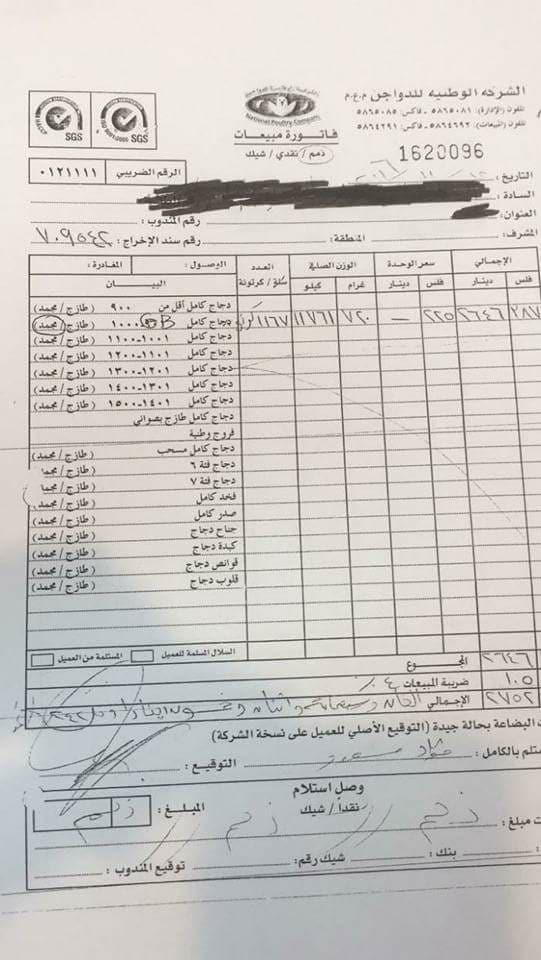 الشركة الوطنية للدواجن م.ع.م
تلفون (الإدارة): ٥٨٦٥٠٨١ - فاكس: ٥٨٦٥٠٨٥
تلفون (المبيعات): ٥٨٦٤٦٩٢ - فاكس: ٥٨٦٤٢٩١
National Poultry Company
SGS SGS
فاتورة مبيعات
ذمم / نقدي / شيك
1620096
الرقم الضريبي ٠١٢١١١١
التاريخ:
السادة:
العنوان: رقم المندوب:
المشرف: المنطقة: رقم سند الإخراج: ٧٠٩٥٤٢
الإجمالي سعر الوحدة الوزن الصافي العدد الوصول: المغادرة:
فلس دينار فلس دينار غرام كيلو سلق / كرتونة البيـــان
دجاج كامل أقل من ٩٠٠ (طازج / مجمد)
٢٨٧ ٢٦٤٦ ٢٢٥ — ٧٢٠ ١١٧٦١ ١١٦٧ دجاج كامل B ١٠٠٠ (طازج / مجمد)
دجاج كامل ١٠٠١-١١٠٠ (طازج / مجمد)
دجاج كامل ١١٠١-١٢٠٠ (طازج / مجمد)
دجاج كامل ١٢٠١-١٣٠٠ (طازج / مجمد)
دجاج كامل ١٣٠١-١٤٠٠ (طازج / مجمد)
دجاج كامل ١٤٠١-١٥٠٠ (طازج / مجمد)
دجاج كامل طازج بصواني
فروج وطنية
دجاج كامل مسحب (طازج / مجمد)
دجاج فئة ٦ (طازج / مجم
دجاج فئة ٧ (طازج / مجم
فخد كامل (طازج / مجمد)
صدر كامل (طازج / مجمد)
جناح دجاج (طازج / مجمد)
كبدة دجاج (طازج / مجمد)
قوانص دجاج (طازج / مجمد)
قلوب دجاج (طازج / مجمد)
السلال المسلمة للعميل المستلمة من العميل
المجموع ٢٦٤٦
ضريبة المبيعات ٤ ٪ ١٠٥
الإجمالي ٢٧٥٢
ت البضاعة بحالة جيدة (التوقيع الأصلي للعميل على نسخة الشركة)
ستلم بالكامل: التوقيع:
وصل استلام
نقداً / شيك المبلغ: ذمم
ت مبلغ: ذمم ذمم
بنك: شيك رقم: توقيع المندوب: